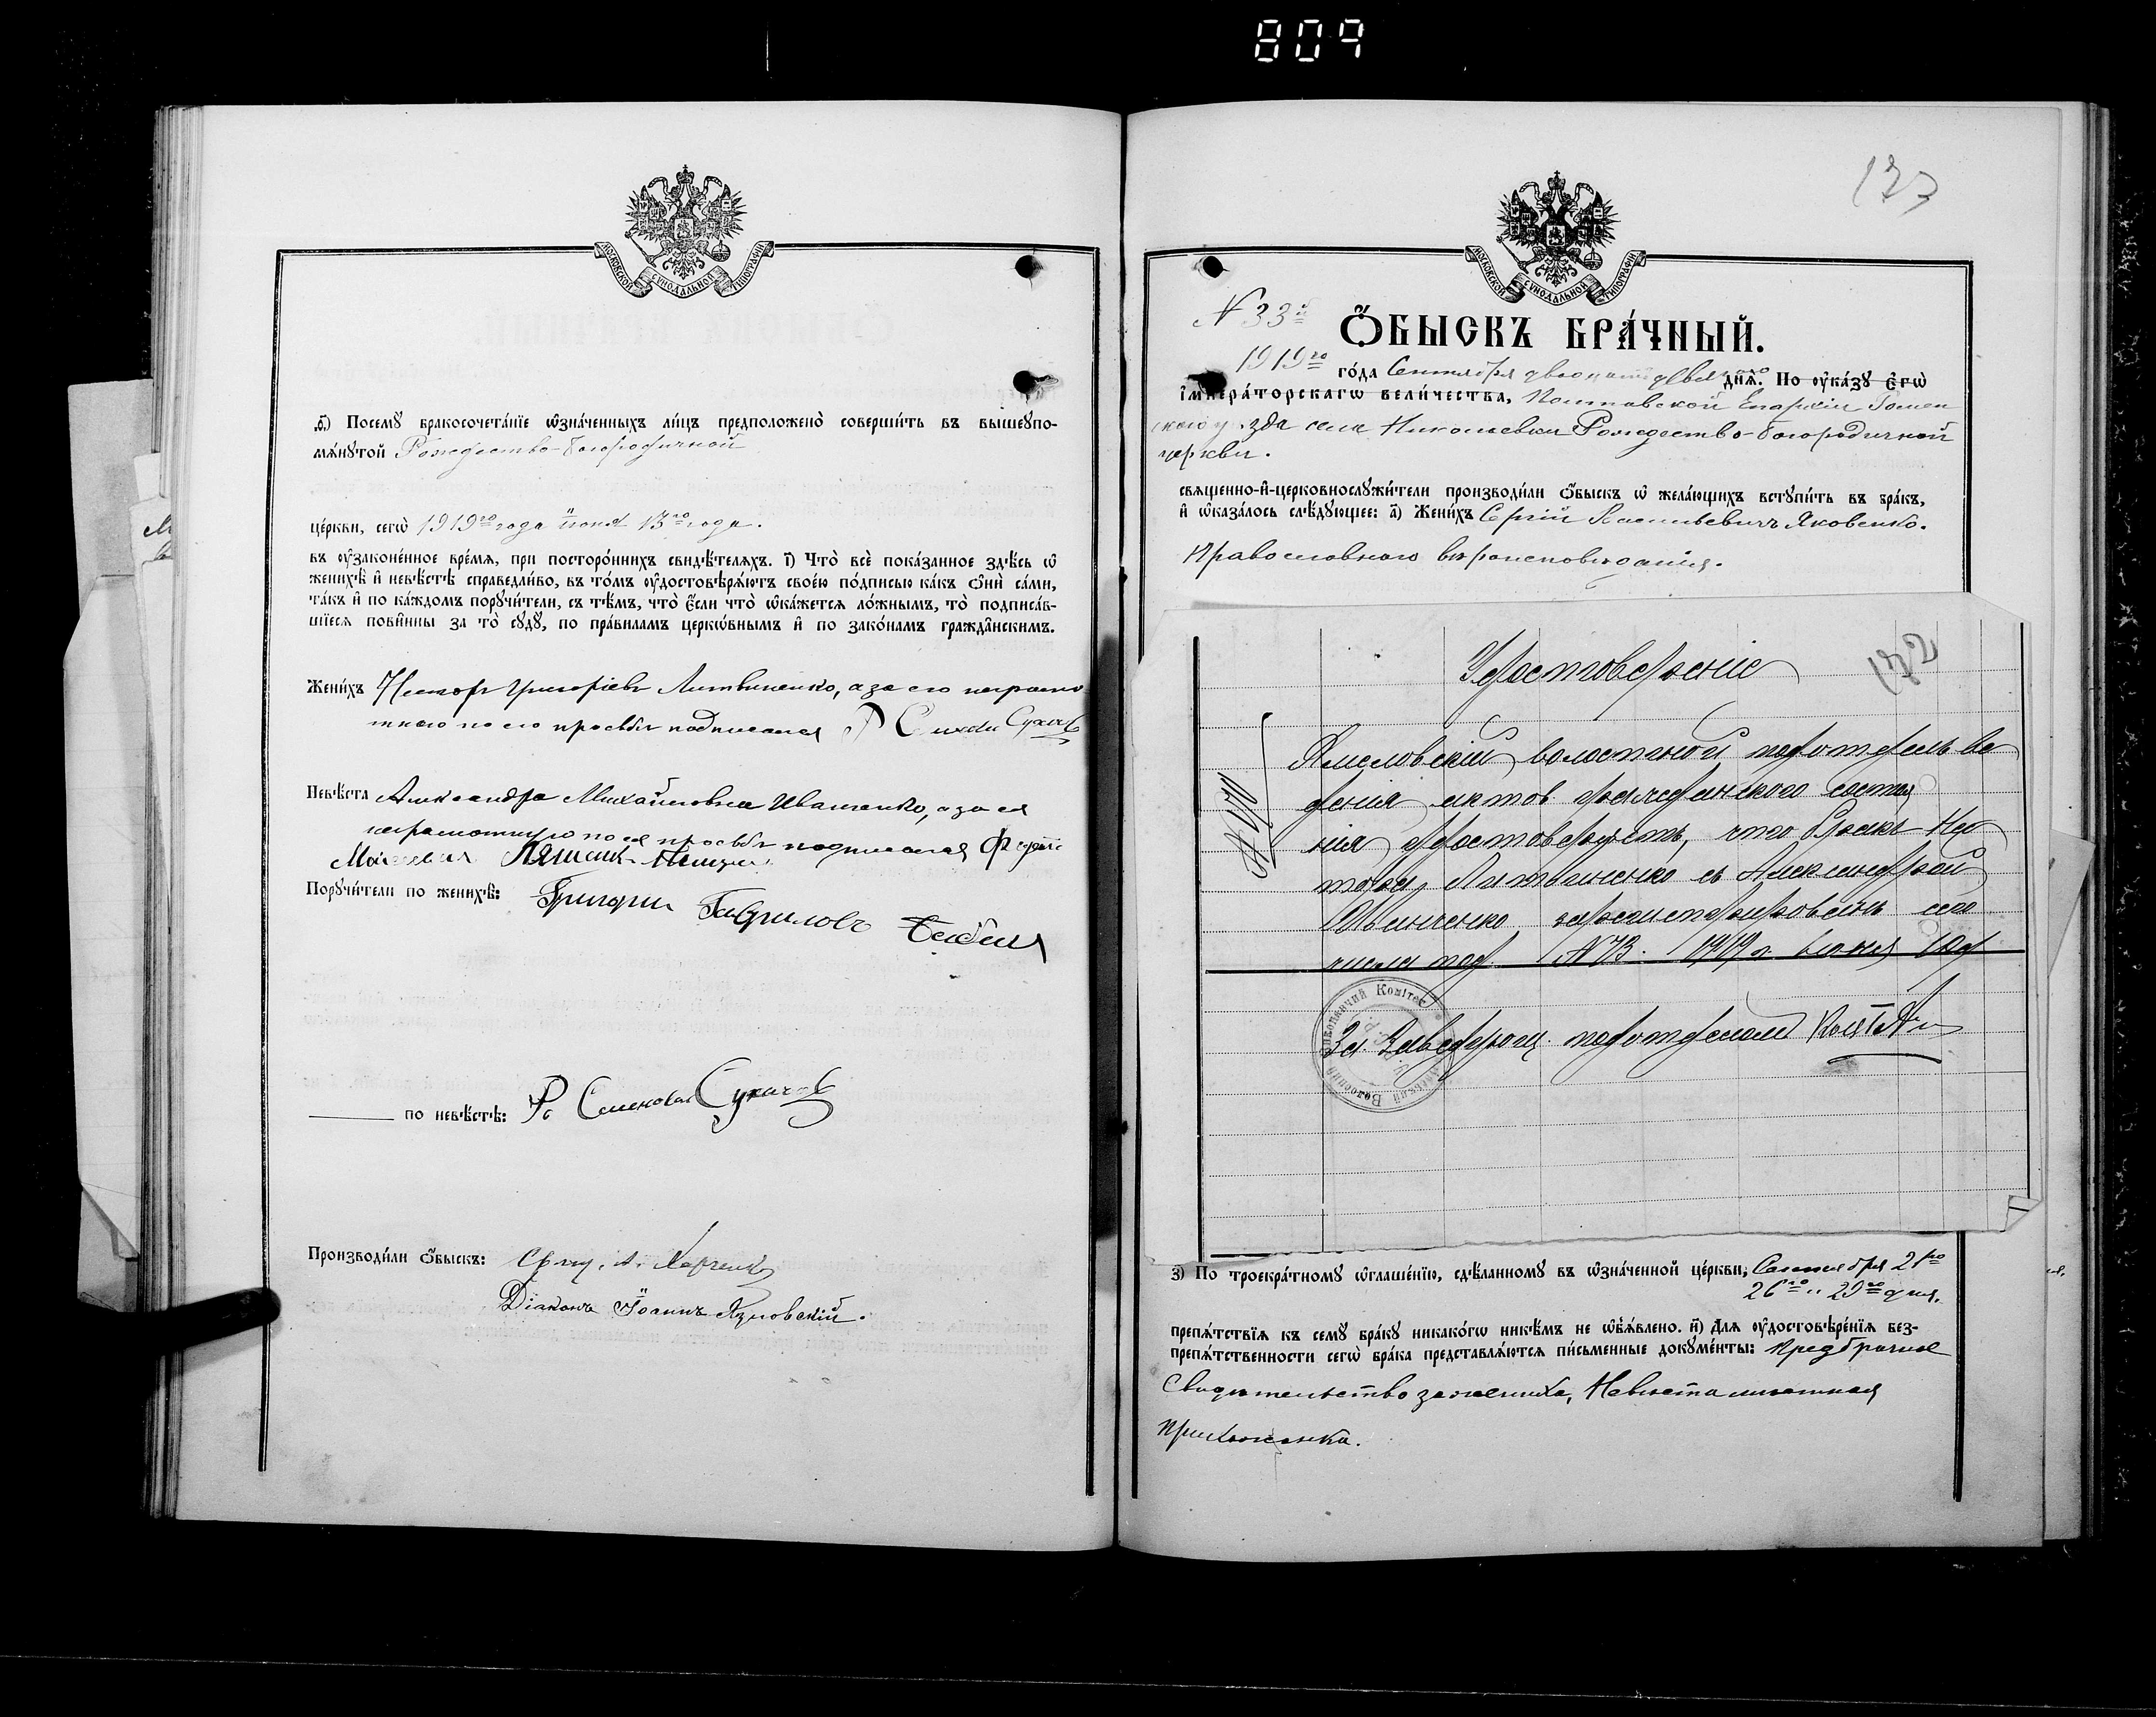 809
МОСКОВСКОЙ СУНОДАЛЬНОЙ ТИПОГРАФІИ
ѳ҃) Посемꙋ̀ бракосочета́нїе ѡ҆зна́ченныхъ ли́цъ предположено̀ соверши́ть въ вышеꙋпо-
мѧ́нꙋтой Рождество-Богородичной
це́ркви, сегѡ̀ 1919го года іюня 13го года.
въ ᲂу҆зако́ненное вре́мѧ, при посторо́ннихъ свидѣ́телѧхъ. і҃) Что̀ всѐ пока́занное здѣ́сь ѡ҆
женихѣ̀ и҆ невѣ́стѣ справедли́во, въ то́мъ ᲂу҆достовѣрѧ́ютъ свое́ю по́дписью ка́къ ѻ҆нѝ са́ми,
та́къ и҆ по ка́ждомъ порꙋчи́тели, съ тѣ́мъ, что̀ є҆́сли что̀ ѡ҆ка́жетсѧ ло́жнымъ, то̀ подписа́в-
шїесѧ пови́нны за то̀ сꙋдꙋ̀, по пра́виламъ церко́внымъ и҆ по зако́намъ гражда́нскимъ.
Жени́хъ Несторъ Григоріевъ Литвиненко, а за его неграмо
тнаго по его просьбѣ подписался Сухачъ
Невѣ́ста Александра Михайловна Иванченко, а за ея
неграмотную по ея просьбѣ подписался
Порꙋчи́тели по женихѣ̀: Григорій Гавриловъ
по невѣ́стѣ: Сухачъ
Производи́ли ѻ҆́быскъ: Свящ. А. Харченко
Діаконъ Іоаннъ Язловскій.
133
МОСКОВСКОЙ СУНОДАЛЬНОЙ ТИПОГРАФІИ
N 33й
Ѻ҆́БЫСКЪ БРА́ЧНЫЙ.
1919го го́да Сентября двадцать девятаго днѧ̀. По ᲂу҆ка́зꙋ є҆гѡ̀
і҆мпера́торскагѡ вели́чества, Полтавской Епархіи Ромен
скаго уѣзда села Николаевки Рождество-Богородичной
церкви.
свѧще́нно-и҆-церковнослꙋжи́тели производи́ли ѻ҆́быскъ ѡ҆ жела́ющихъ встꙋпи́ть въ бра́къ,
и҆ ѡ҆каза́лось слѣ́дꙋющее: а҃) Жени́хъ Сергій Васильевичъ Яковенко.
Православнаго вѣроисповѣданія.
Удостовѣреніе
132
N 170
волостной подотдѣлъ ве
денія актов гражданского состоя
нія удостовѣряетъ, что бракъ Не
тора Литвиненко съ Александрой
Иванченко зарегистрированъ сего
числа под N 73. 1919 г. іюня
Волосний Виконавчий Комітет
За Завѣдующ. подотделомъ
з҃) По троекра́тномꙋ ѡ҆глаше́нїю, сдѣ́ланномꙋ въ ѡ҆зна́ченной це́ркви, Сентября 21го
26го и 29го дня.
препѧ́тствїѧ къ семꙋ̀ бра́кꙋ никако́гѡ никѣ́мъ не ѡ҆б̾ѧ́влено. и҃) Длѧ̀ ᲂу҆достовѣре́нїѧ без-
препѧ́тственности сегѡ̀ бра́ка представлѧ́ютсѧ пи́сьменные докꙋме́нты: предбрачное
свидѣтельство за жениха, Невѣста мѣстная
прихожанка.